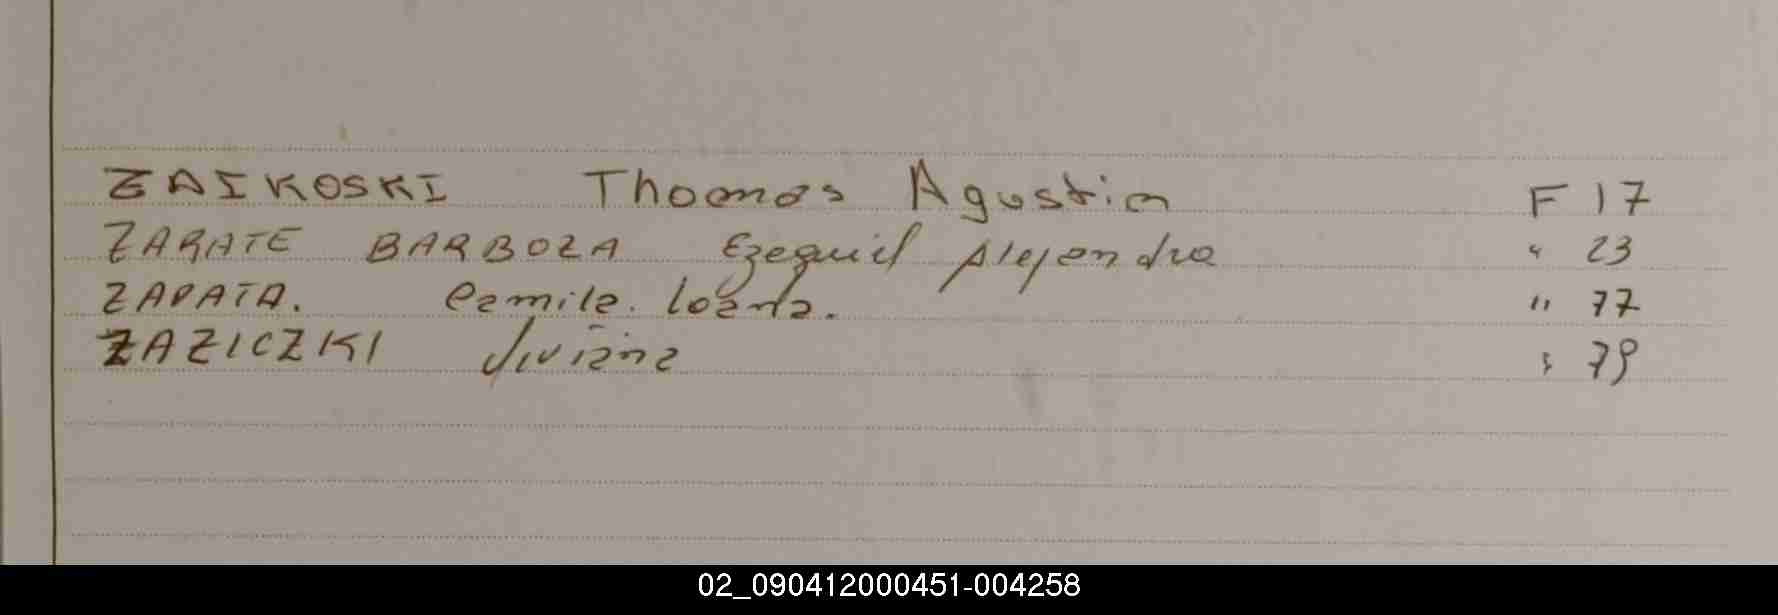 ZAIKOSKI Thomas Agustin F 17
ZARATE BARBOZA Ezequiel Alejandro " 23
ZAPATA. Camila. Loana. " 77
ZAZICZKI Viviana " 79
02_090412000451-004258